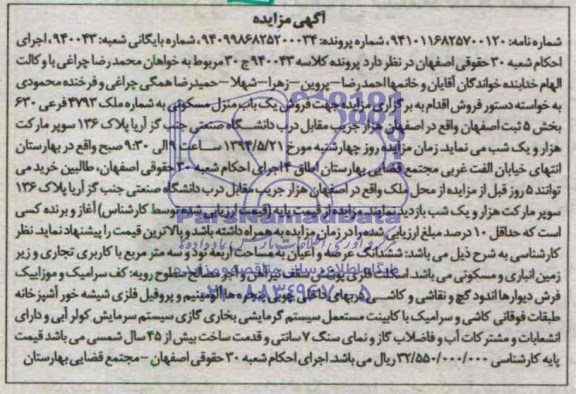 آگهی مزایده
شماره نامه: ۹۴۱۰۱۱۶۸۲۵۷۰۰۱۲۰، شماره پرونده: ۹۴۰۹۹۸۶۸۲۵۲۰۰۰۳۴، شماره بایگانی شعبه: ۹۴۰۰۴۳، اجرای
احکام شعبه ۳۰ حقوقی اصفهان در نظر دارد پرونده کلاسه ۹۴۰۰۴۳ ج ۳۰ مربوط به خواهان محمدرضا چراغی با وکالت
الهام خدابنده خواندگان آقایان و خانمها احمدرضا – پروین – زهرا – شهلا – حمیدرضا همگی چراغی و فرخنده محمودی
به خواسته دستور فروش اقدام به برگزاری مزایده جهت فروش یک باب منزل مسکونی به شماره ملک ۴۷۹۳ فرعی ۶۳۰
بخش ۵ ثبت اصفهان واقع در اصفهان هزار جریب مقابل درب دانشگاه صنعتی جنب گز آریا پلاک ۱۳۶ سوپر مارکت
هزار و یک شب می نماید. زمان مزایده روز چهارشنبه مورخ ۱۳۹۴/۵/۲۱ ساعت ۹ الی ۹:۳۰ صبح واقع در بهارستان
انتهای خیابان الفت غربی مجتمع قضایی بهارستان اطاق ۴ اجرای احکام شعبه ۳۰ حقوقی اصفهان، طالبین خرید می
توانند ۵ روز قبل از مزایده از محل ملک واقع در اصفهان هزار جریب مقابل درب دانشگاه صنعتی جنب گز آریا پلاک ۱۳۶
سوپر مارکت هزار و یک شب بازدید نمایند مزایده از قیمت پایه (قیمت ارزیابی شده توسط کارشناس) آغاز و برنده کسی
است که حداقل ۱۰ درصد مبلغ ارزیابی شده را در زمان مزایده به همراه داشته باشد و بالاترین قیمت را پیشنهاد نماید. نظر
کارشناسی به شرح ذیل می باشد: ششدانگ عرصه و اعیان به مساحت اربعه نود و سه متر مربع با کاربری تجاری و زیر
زمین انباری و مسکونی می باشد اسکلت فلزی پوشش سقف تیرآهن و آجر مصالح سطوح رویه: کف سرامیک و موزاییک
فرش دیوارها اندود گچ و نقاشی و کاشی دربهای داخلی چوبی پنجره ها آلومینیم و پروفیل فلزی شیشه خور آشپزخانه
طبقات فوقانی کاشی و سرامیک با کابینت مستعمل سیستم گرمایشی بخاری گازی سیستم سرمایش کولر آبی و دارای
انشعابات و مشترکات آب و فاضلاب گاز و نمای سنگ ۷ سانتی و قدمت ساخت بیش از ۴۵ سال شمسی می باشد قیمت
پایه کارشناسی ۳۲/۵۵۰/۰۰۰/۰۰۰ ریال می باشد. اجرای احکام شعبه ۳۰ حقوقی اصفهان – مجتمع قضایی بهارستان
ParsNamadData
پایگاه اطلاع رسانی مناقصه و مزایده
۰۲۱-۸۸۳۴۹۶۷۰-۵